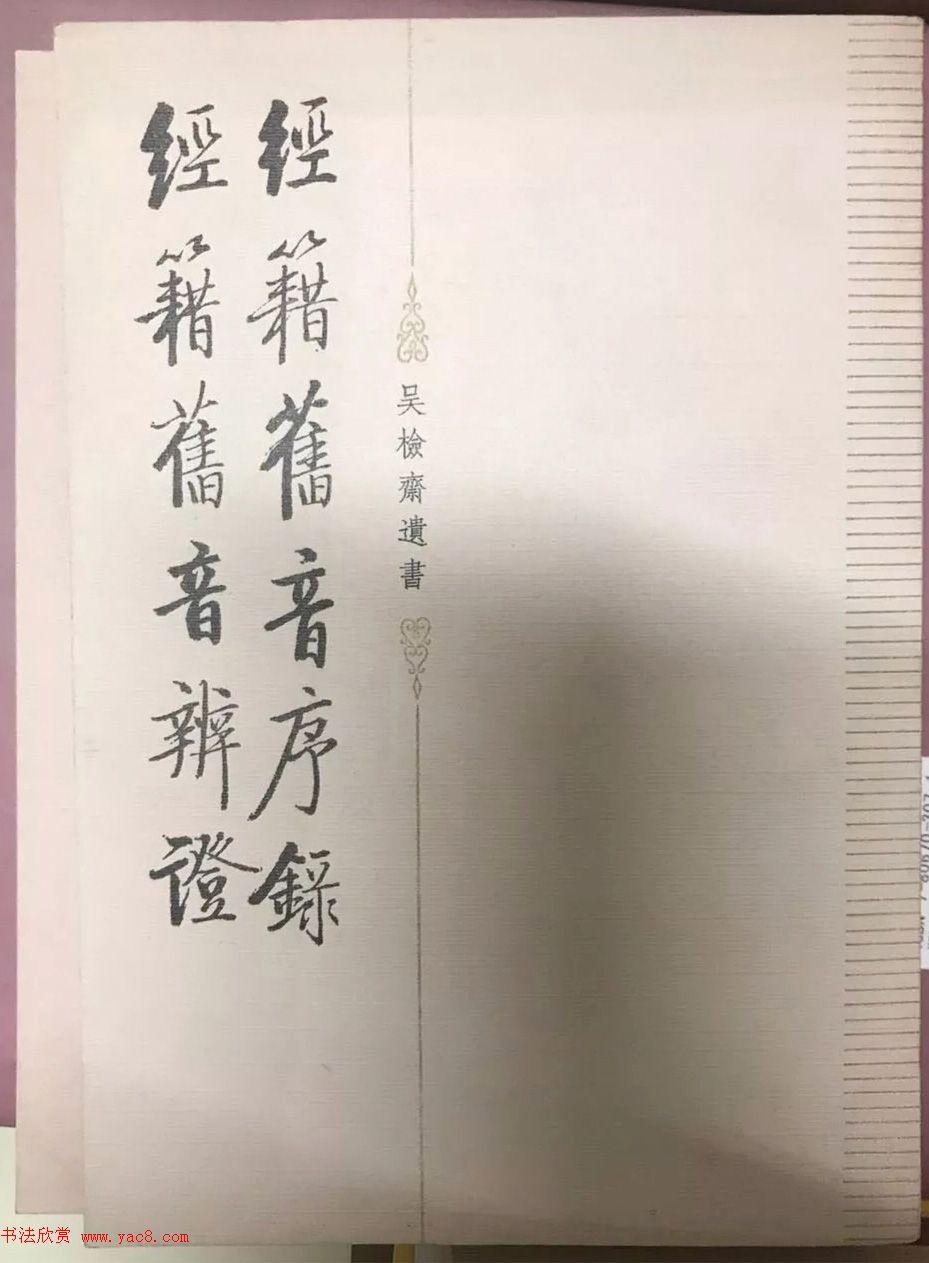 吴檢齋遺書
經籍舊音序錄
經籍舊音辨證
书法欣赏 www.yac8.com